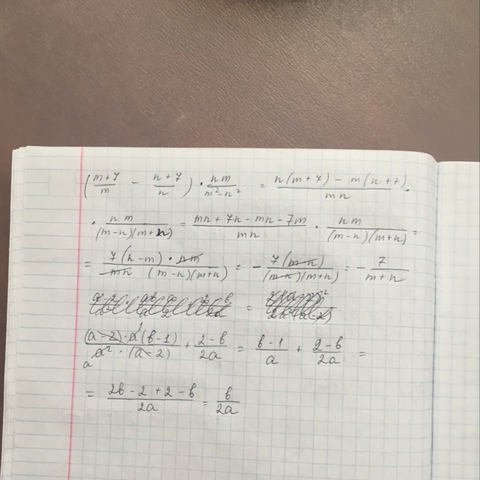 (m+7/m - n+7/n) · nm/m²-n² = n(m+7) - m(n+7)/mn ·
· nm/(m-n)(m+n) = mn+7n-mn-7m/mn · nm/(m-n)(m+n) =
= 7(n-m)·nm/mn (m-n)(m+n) = - 7(m-n)/(m-n)(m+n) = - 7/m+n
(a-2)·a(b-1)/a²·(a-2) + 2-b/2a = b-1/a + 2-b/2a =
= 2b-2+2-b/2a = b/2a